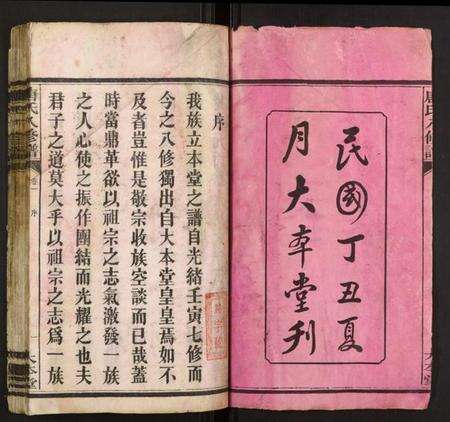 民國丁丑夏
月大本堂刋
序
我族立本堂之譜自光緒壬寅七修而
今之八修獨出自大本堂皇皇焉如不
及者豈惟是敬宗收族空談而已哉蓋
時當鼎革欲以祖宗之志氣激發一族
之人心使之振作團結而光耀之也夫
君子之道莫大乎以祖宗之志爲一族
唐氏八修譜
序
大本堂